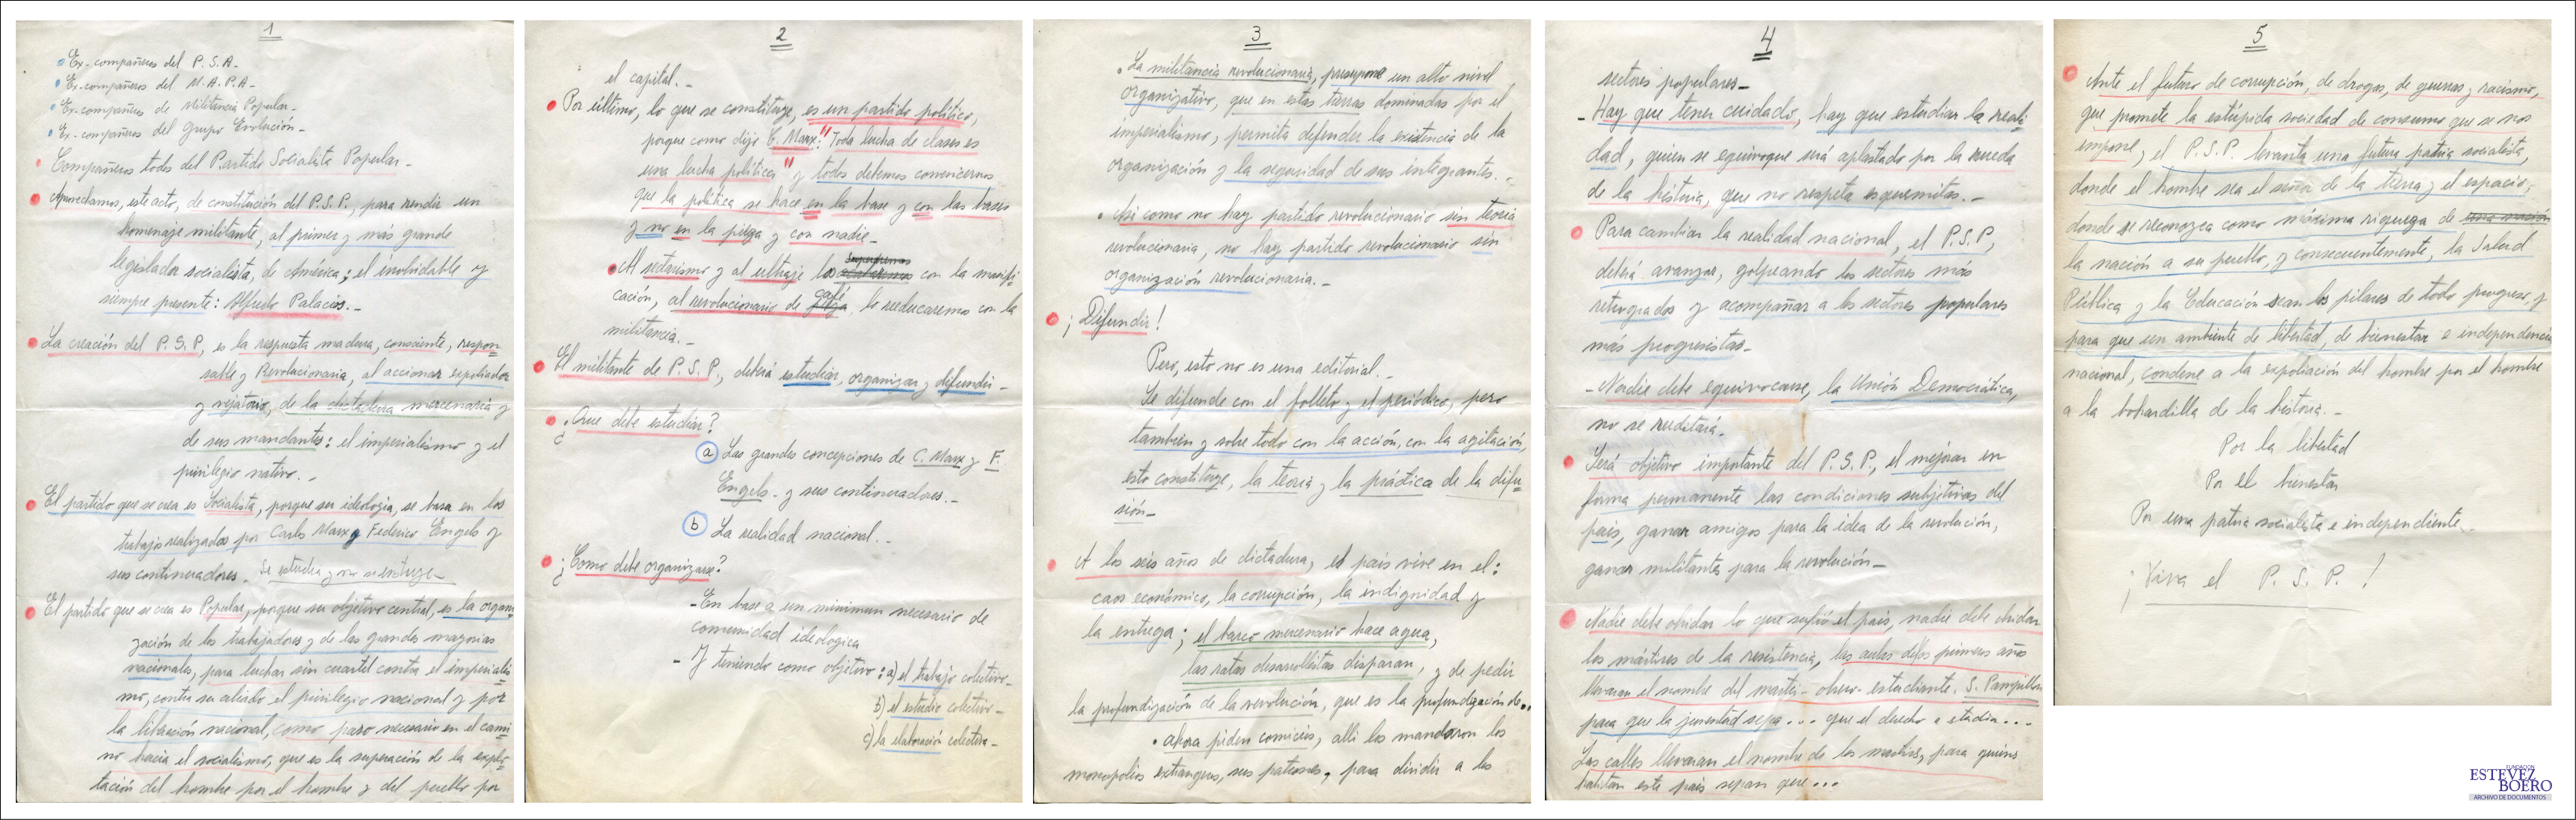 1
Ex-compañeros del P.S.A-
Ex-compañeros del M.A.P.A-
Ex-compañeros de Militancia Popular-
Ex-compañeros del grupo Evolución-
Compañeros todos del Partido Socialista Popular-
Aprovechamos, este acto, de constitución del P.S.P, para rendir un
homenaje militante, al primer y más grande
legislador socialista, de América; el inolvidable y
siempre presente: Alfredo Palacios.-
La creación del P.S.P, es la respuesta madura, consciente, respon-
sable y Revolucionaria, al accionar expoliador
y vejatorio, de la dictadura mercenaria y
de sus mandantes: el imperialismo y el
privilegio nativo.-
El partido que se crea es Socialista, porque su ideología, se basa en los
trabajos realizados por Carlos Marx y Federico Engels y
sus continuadores. Se estudia y no se
El partido que se crea es Popular, porque su objetivo central, es la organi
zación de los trabajadores y de las grandes mayorías
nacionales, para luchar sin cuartel contra el imperialis
mo, contra su aliado el privilegio nacional y por
la liberación nacional, como paso necesario en el cami
no hacia el socialismo, que es la superación de la explo-
tación del hombre por el hombre y del pueblo por
2
el capital.-
Por último, lo que se constituye, es un partido político,
porque como dijo C. Marx: "Toda lucha de clases es
una lucha política" y todos debemos convencernos
que la política se hace en la base y con las bases
y no en la pieza y con nadie-
superaremos
Al sectarismo y al ultraje los con la masifi
cación, al revolucionario de café, lo reeducaremos con la
militancia.-
El militante de P.S.P., deberá estudiar, organizar y difundir-
¿Que debe estudiar?
a) Las grandes concepciones de C. Marx y F.
Engels- y sus continuadores.-
b) La realidad nacional.-
¿Como debe organizarse?
-En base a un minimun necesario de
comunidad ideologica
-Y teniendo como objetivo: a) el trabajo colectivo-
b) el estudio colectivo-
c) la elaboración colectiva-
3
La militancia revolucionaria, presupone un alto nivel
organizativo, que en estas tierras dominadas por el
imperialismo, permita defender la existencia de la
organización y la seguridad de sus integrantes.-
Asi como no hay partido revolucionario sin teoría
revolucionaria, no hay partido revolucionario sin
organización revolucionaria.-
¡Difundir!
Pero, esto no es una editorial.-
Se difunde con el folleto y el periódico, pero
también y sobre todo con la acción, con la agitación,
esto constituye, la teoría y la práctica de la difu-
sión-
A los seis años de dictadura, el país vive en el:
caos económico, la corrupción, la indignidad y
la entrega; el barco mercenario hace agua,
las ratas desarrollistas disparan, y de pedir
la profundización de la revolución, que es la profundización de..
ahora piden comicios, alli los mandaron los
monopolios extrangeros, sus patrones, para dividir a los
4
sectores populares-
-Hay que tener cuidado, hay que estudiar la reali
dad, quien se equivoque será aplastado por la rueda
de la historia, que no respeta esquemitas.-
Para cambiar la realidad nacional, el P.S.P,
deberá avanzar, golpeando los sectores más
retrogrados y acompañar a los sectores populares
más progresistas-
-Nadie debe equivocarse, la Unión Democrática,
no se reeditará.
Será objetivo importante del P.S.P., el mejorar en
forma permanente las condiciones subjetivas del
país, ganar amigos para la idea de la revolución,
ganar militantes para la revolución-
Nadie debe olvidar lo que sufrió el país, nadie debe olvidar
los mártires de la resistencia, las aulas de los primeros años
llevaran el nombre del martir-obrero-estudiante. S. Pampillón
para que la juventud sepa... que el derecho a estudiar...
Las calles llevaran el nombre de los martires, para quienes
habitan este país sepan que...
5
Ante el futuro de corrupción, de drogas, de guerras y racismo,
que promete la estúpida sociedad de consumo que se nos
impone, el P.S.P. levanta una futura patria socialista,
donde el hombre sea el señor de la tierra y el espacio,
donde se reconozca como máxima riqueza de una nación
la nación a su pueblo, y consecuentemente, la Salud
Pública y la Educación sean los pilares de todo progreso, y
para que un ambiente de libertad, de bienestar e independencia
nacional, condene a la expoliación del hombre por el hombre
a la bohardilla de la historia.-
Por la libertad
Por el bienestar
Por una patria socialista e independiente.-
¡Viva el P.S.P.!
FUNDACION
ESTEVEZ
BOERO
ARCHIVO DE DOCUMENTOS